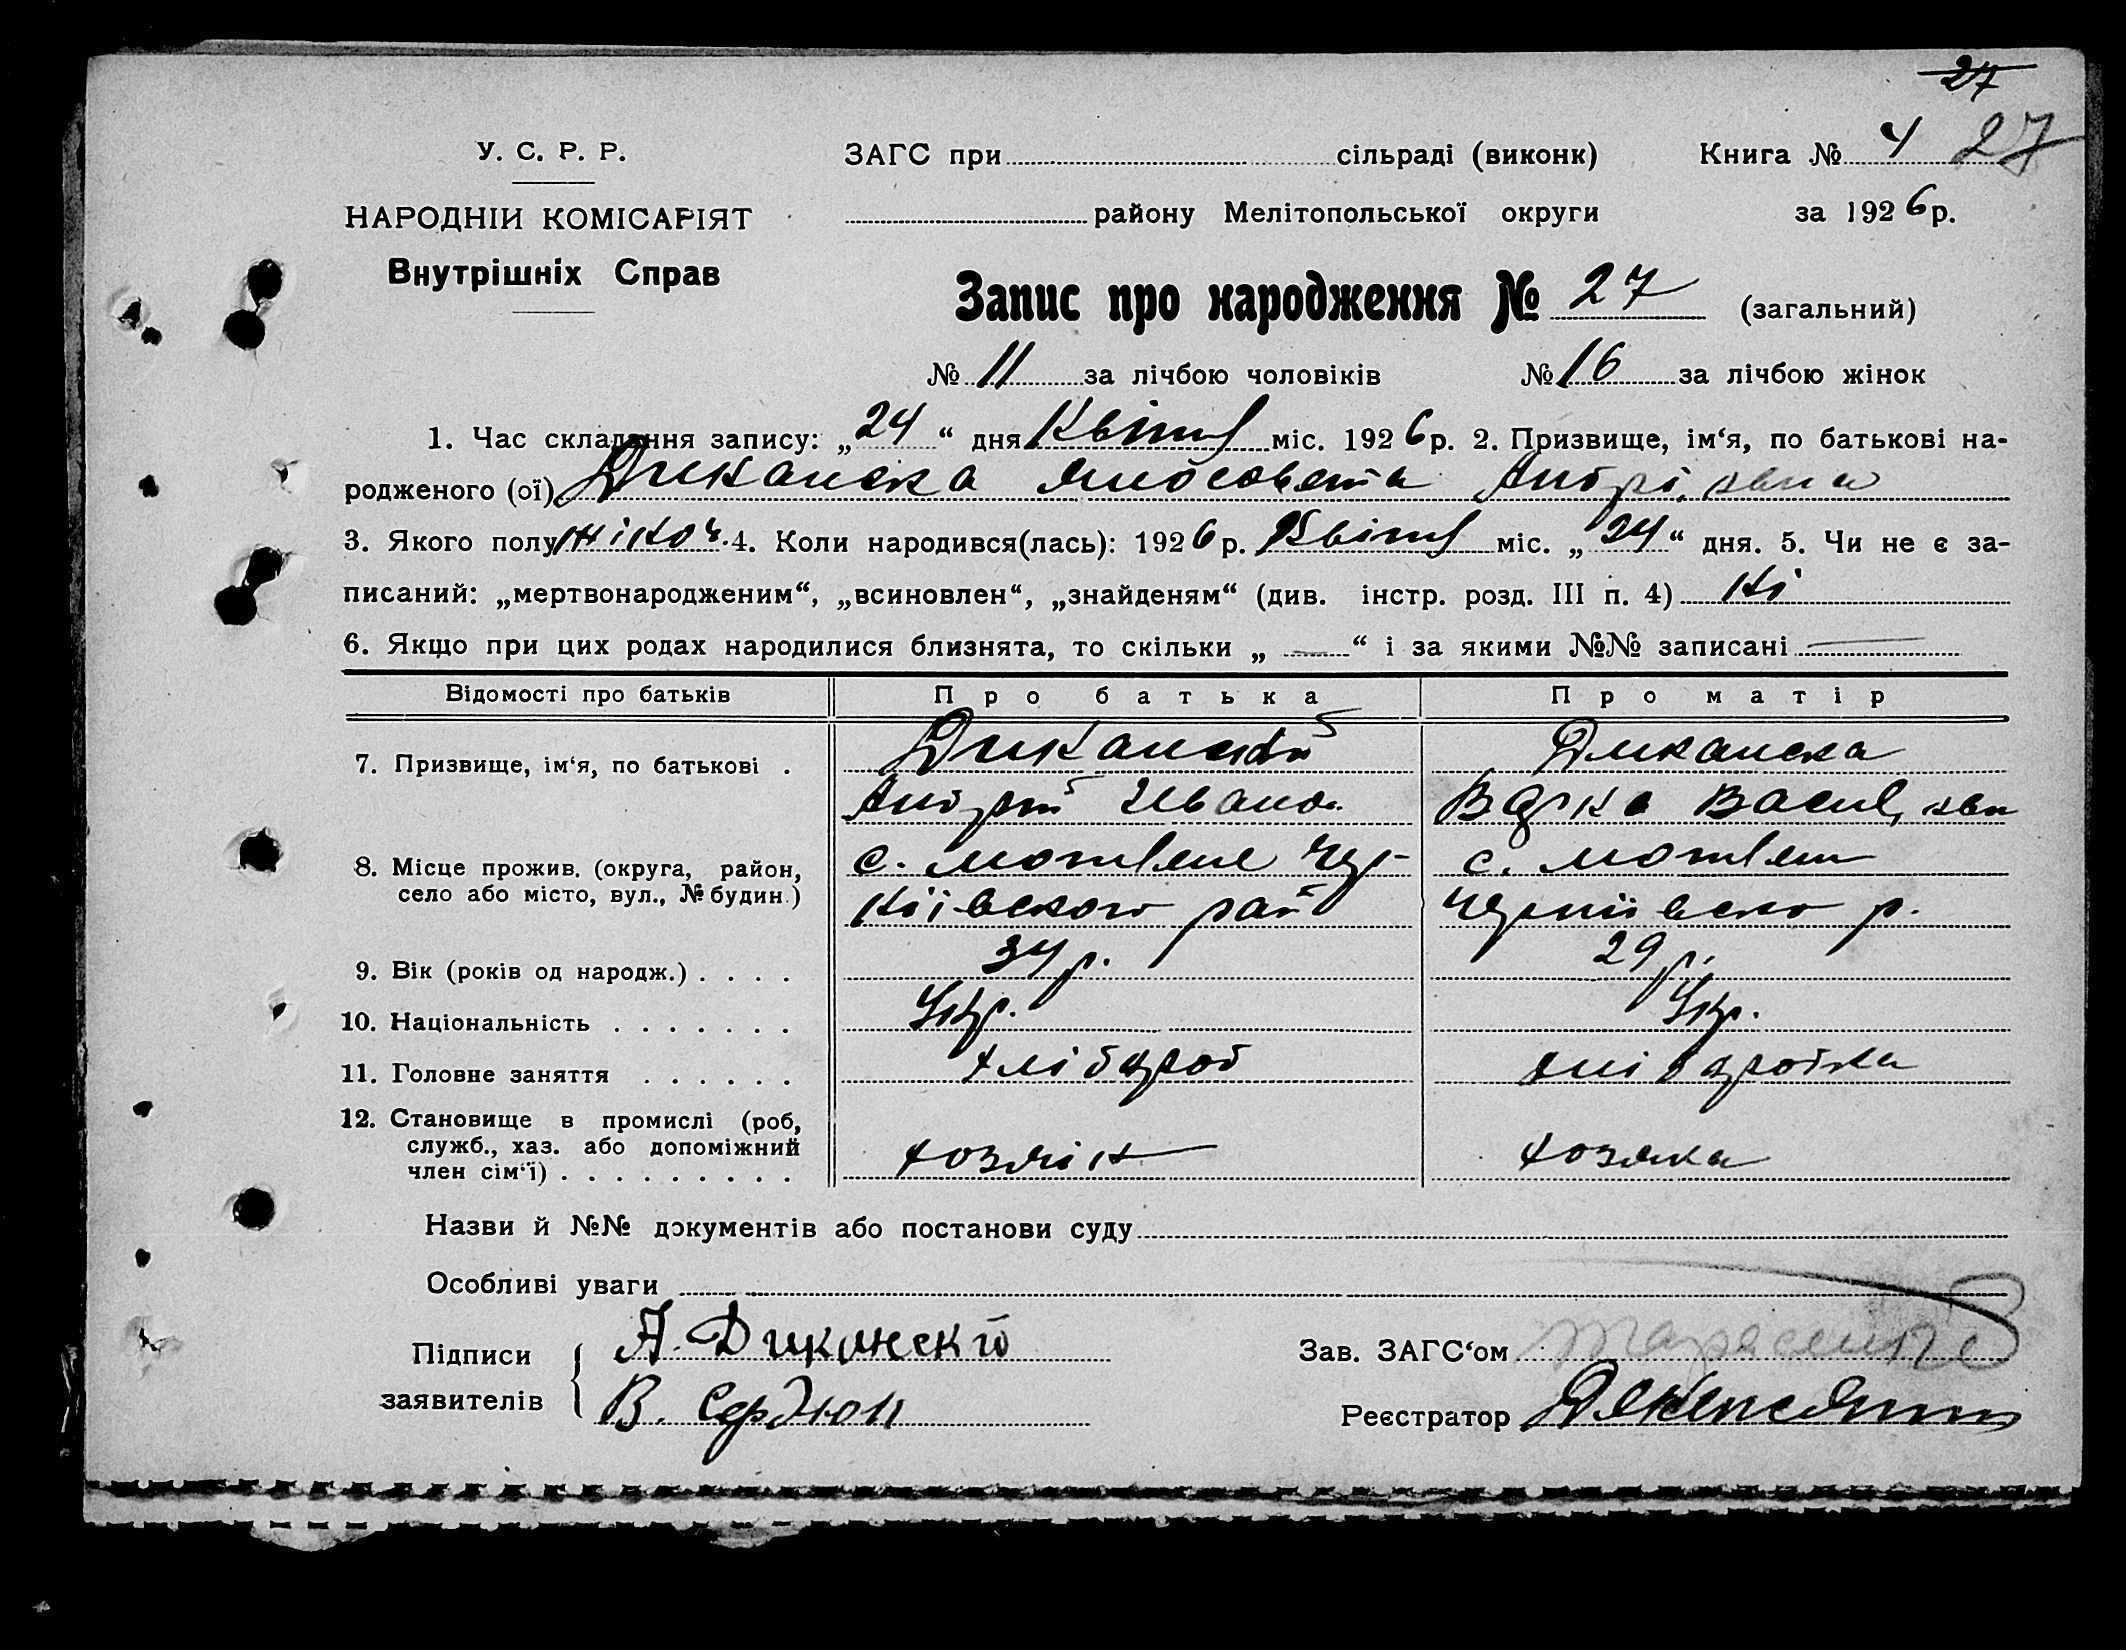 27
У. С. Р. Р.
ЗАГС при сільраді (виконк) Книга № 4 27
НАРОДНІЙ КОМІСАРІЯТ
району Мелітопольської округи за 1926 р.
Внутрішніх Справ
Запис про народження № 27 (загальний)
№ 11 за лічбою чоловіків № 16 за лічбою жінок
1. Час складання запису: „24“ дня Квітня міс. 1926 р. 2. Призвище, ім‘я, по батькові на-
родженого (ої) Диканска Андрі.евна
3. Якого полу жіноч. 4. Коли народився(лась): 1926 р. Квітня міс. „24“ дня. 5. Чи не є за-
писаний: „мертвонародженим“, „всиновлен“, „знайденям“ (див. інстр. розд. III п. 4) Ні
6. Якщо при цих родах народилися близнята, то скільки „ — “ і за якими №№ записані —
Відомості про батьків Про батька Про матір
7. Призвище, ім‘я, по батькові . Диканский Диканска
Андрій Иванов. Варка
8. Місце прожив. (округа, район, с. Чер- с.
село або місто, вул., № будин.) ніівского рай р.
9. Вік (років од народж.) . . . . 34 р. 29 р.
10. Національність . . . . . . . Укр. Укр.
11. Головне заняття . . . . . . хлібороб хліборобка
12. Становище в промислі (роб,
служб., хаз. або допоміжний хозяін хозяка
член сім‘ї) . . . . . . . . .
Назви й №№ документів або постанови суду
Особливі уваги
Підписи А. Диканскій Зав. ЗАГС‘ом
заявителів В. Сердюк Реєстратор